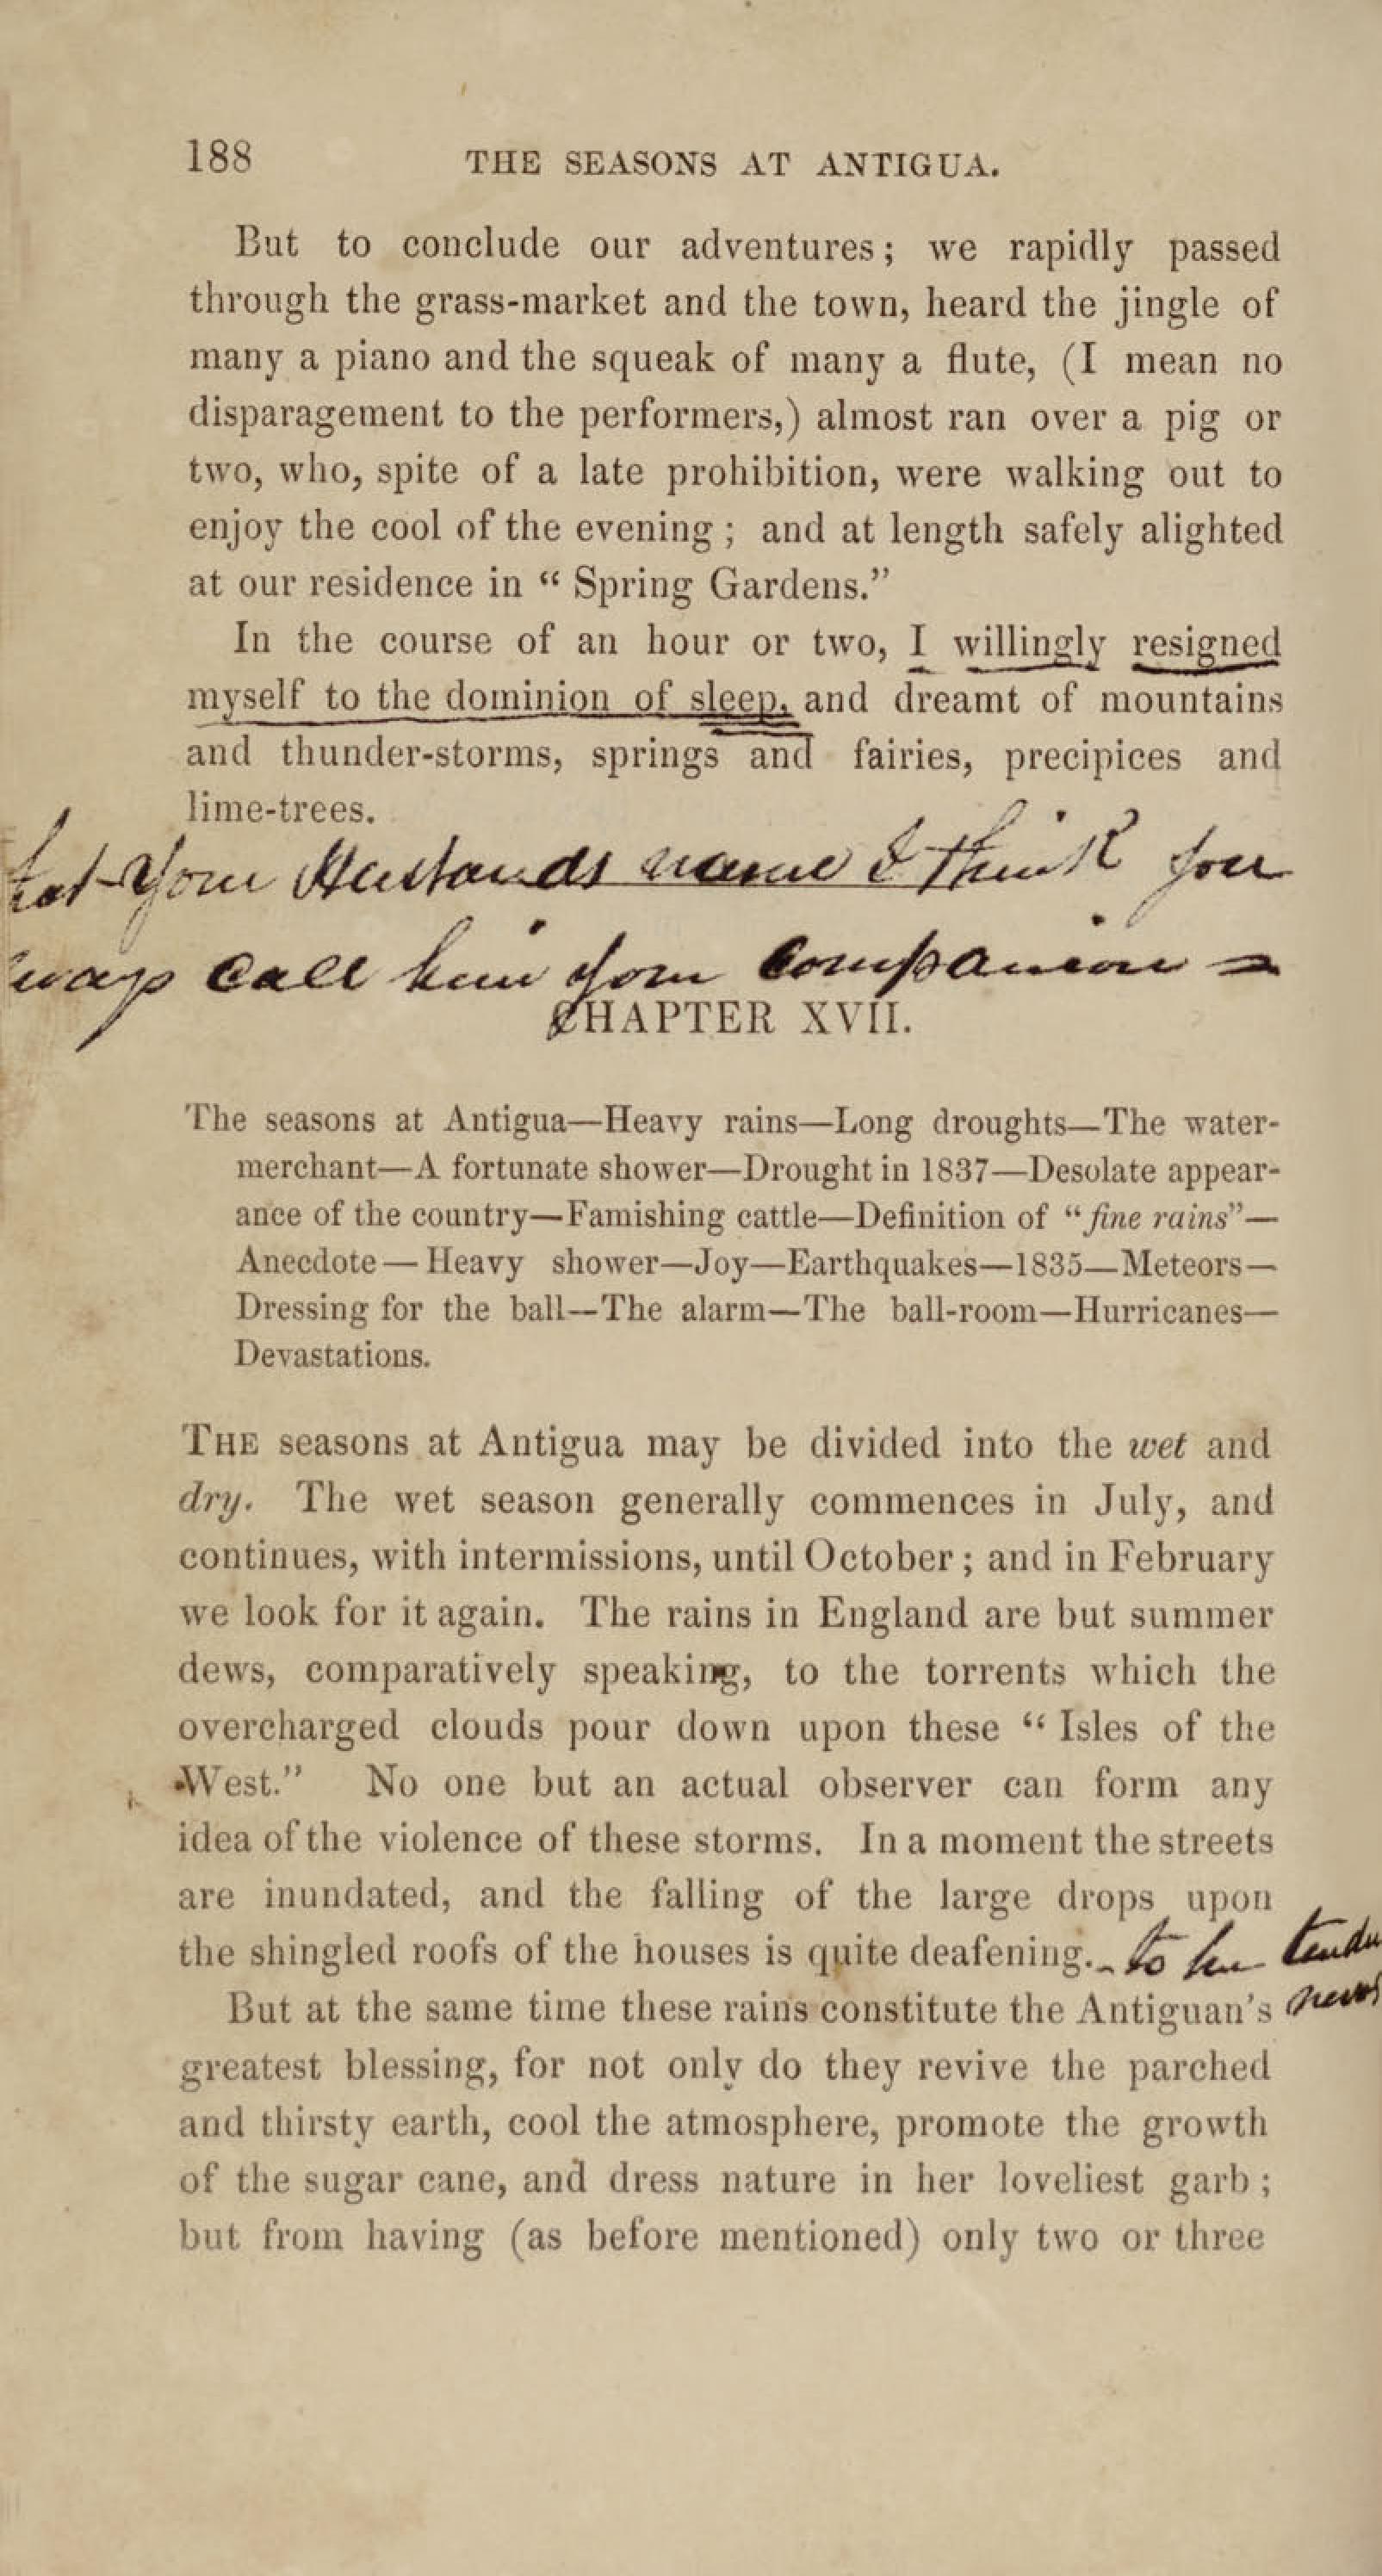 188 THE SEASONS AT ANTIGUA.
But to conclude our adventures; we rapidly passed
through the grass-market and the town, heard the jingle of
many a piano and the squeak of many a flute, (I mean no
disparagement to the performers,) almost ran over a pig or
two, who, spite of a late prohibition, were walking out to
enjoy the cool of the evening; and at length safely alighted
at our residence in “Spring Gardens.”
In the course of an hour or two, I willingly resigned
myself to the dominion of sleep, and dreamt of mountains
and thunder-storms, springs and fairies, precipices and
lime-trees.
Your Husbands name I think you
call him your Companion
CHAPTER XVII.
The seasons at Antigua—Heavy rains—Long droughts—The water-
merchant—A fortunate shower—Drought in 1837—Desolate appear-
ance of the country—Famishing cattle—Definition of “fine rains”—
Anecdote—Heavy shower—Joy—Earthquakes—1835—Meteors—
Dressing for the ball—The alarm—The ball-room—Hurricanes—
Devastations.
THE seasons at Antigua may be divided into the wet and
dry. The wet season generally commences in July, and
continues, with intermissions, until October; and in February
we look for it again. The rains in England are but summer
dews, comparatively speaking, to the torrents which the
overcharged clouds pour down upon these “Isles of the
West.” No one but an actual observer can form any
idea of the violence of these storms. In a moment the streets
are inundated, and the falling of the large drops upon
the shingled roofs of the houses is quite deafening. to her
But at the same time these rains constitute the Antiguan's
greatest blessing, for not only do they revive the parched
and thirsty earth, cool the atmosphere, promote the growth
of the sugar cane, and dress nature in her loveliest garb;
but from having (as before mentioned) only two or three